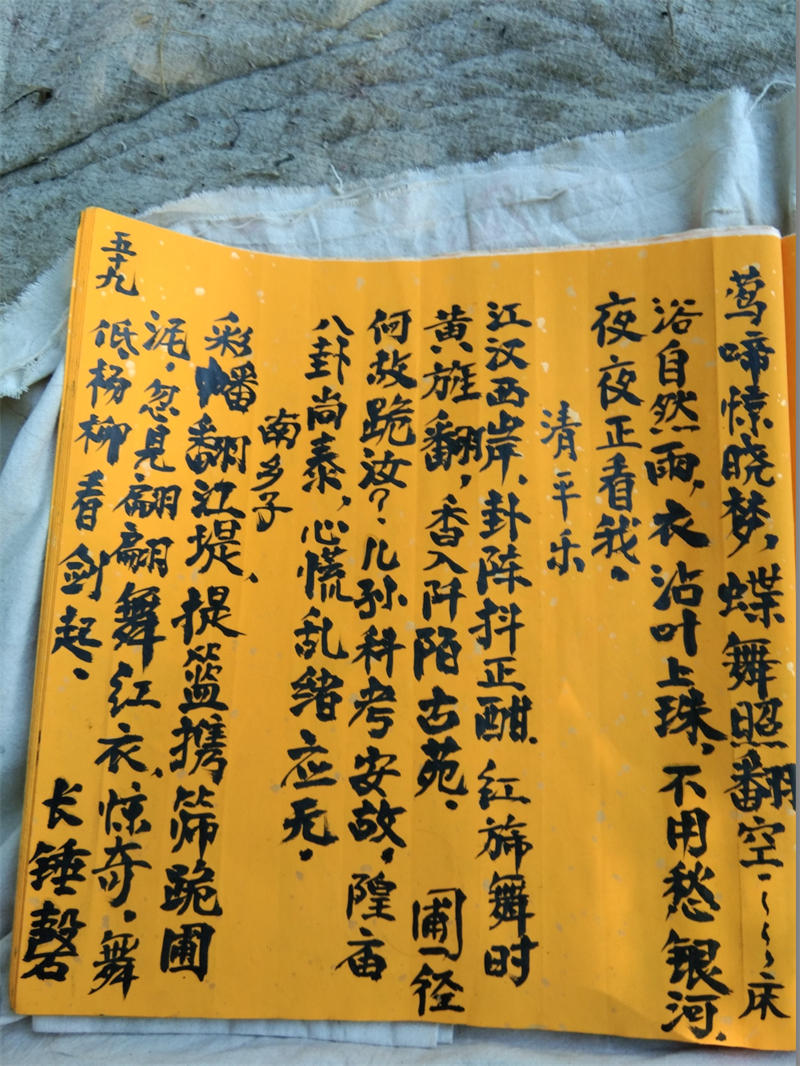 莺啼惊晓梦，蝶舞照翻空、床
浴自然雨，衣沾叶上珠，不用愁银河。
夜夜正看我。
清平乐
江汉西岸，卦阵抖正酣。红旆舞时
黄旌翻，香入阡陌古苑。圃一径
何故跪汝？儿孙科考安故，隍庙
八卦尚泰，心慌乱绪应无。
南乡子
彩幡翻江堤，提篮携筛跪圃
泥，忽见翩翩舞红衣，惊奇。舞
低杨柳春剑起。长锤磬
五十九